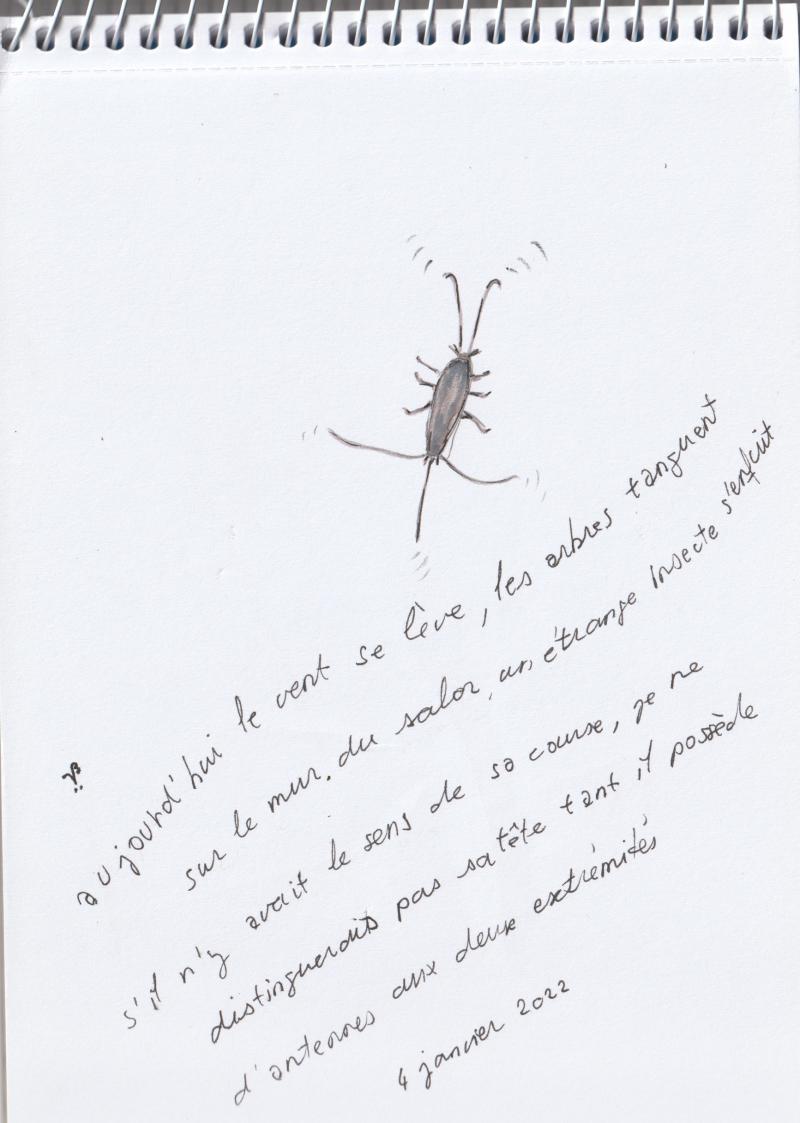 aujourd'hui le vent se lève, les arbres tanguent
sur le mur du salon, un étrange insecte s'enfuit
s'il n'y avait le sens de sa course, je ne
distinguerais pas sa tête tant il possède
d'antennes aux deux extrémités
4 janvier 2022